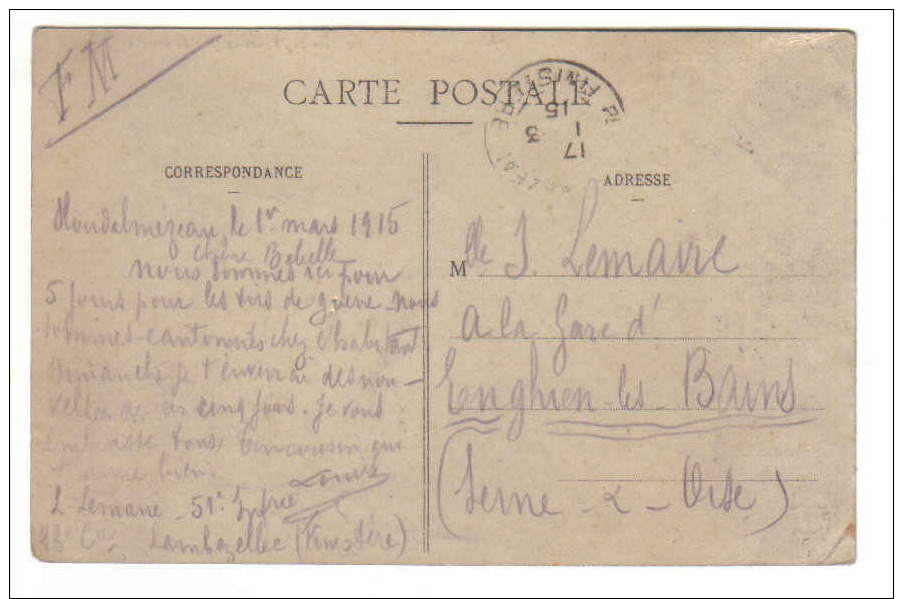 FM
CARTE POSTALE
PL FINISTERE
17
1 3
15
CORRESPONDANCE
Ploudalmézeau le 1er mars 1915
Chère Bebelle
nous sommes ici pour
5 jours pour les tirs de guerre. nous
sommes cantonnés chez l'habitant
Dimanche je t'enverrai des nou-
velles de ces cinq jours. Je vous
embrasse tous Ton cousin qui
t'aime bien.
Louis
L. Lemaire 51e Infrie
28e Cie Lambezellec (Finistère)
ADRESSE
M lle J. Lemaire
A la Gare d'
Enghien-les-Bains
(Seine-&-Oise)